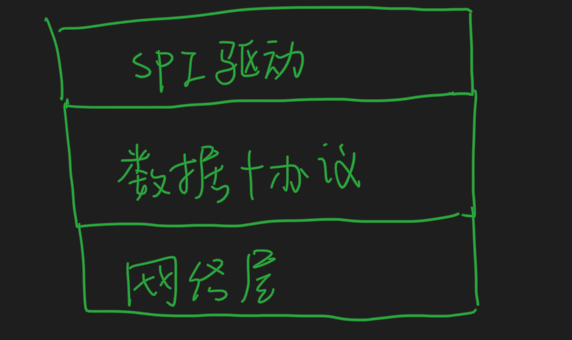 SPI驱动
数据+协议
网络层